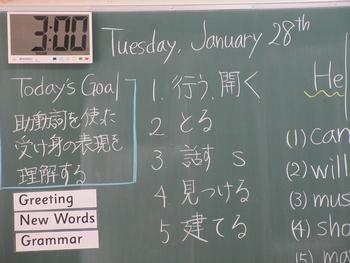 3:00
Tuesday, January 28th
Today's Goal
助動詞を使った
受け身の表現を
理解する
Greeting
New Words
Grammar
1. 行う, 開く
2. とる
3. 話す s
4. 見つける
5. 建てる
He
(1) can
(2) will
(3) mus
(4) sho
(5) ma